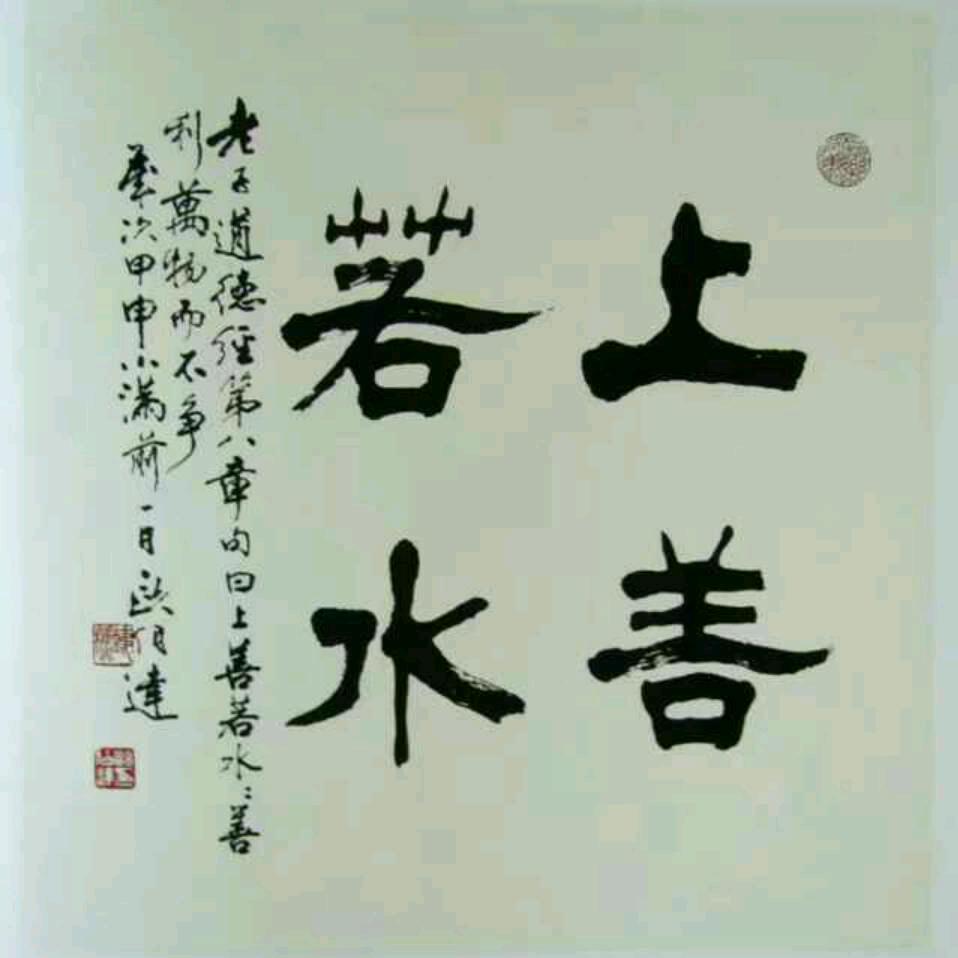 上善
若水
老子道德經第八章句曰上善若水〻善
利萬物而不争
歲次甲申小滿前一日 達